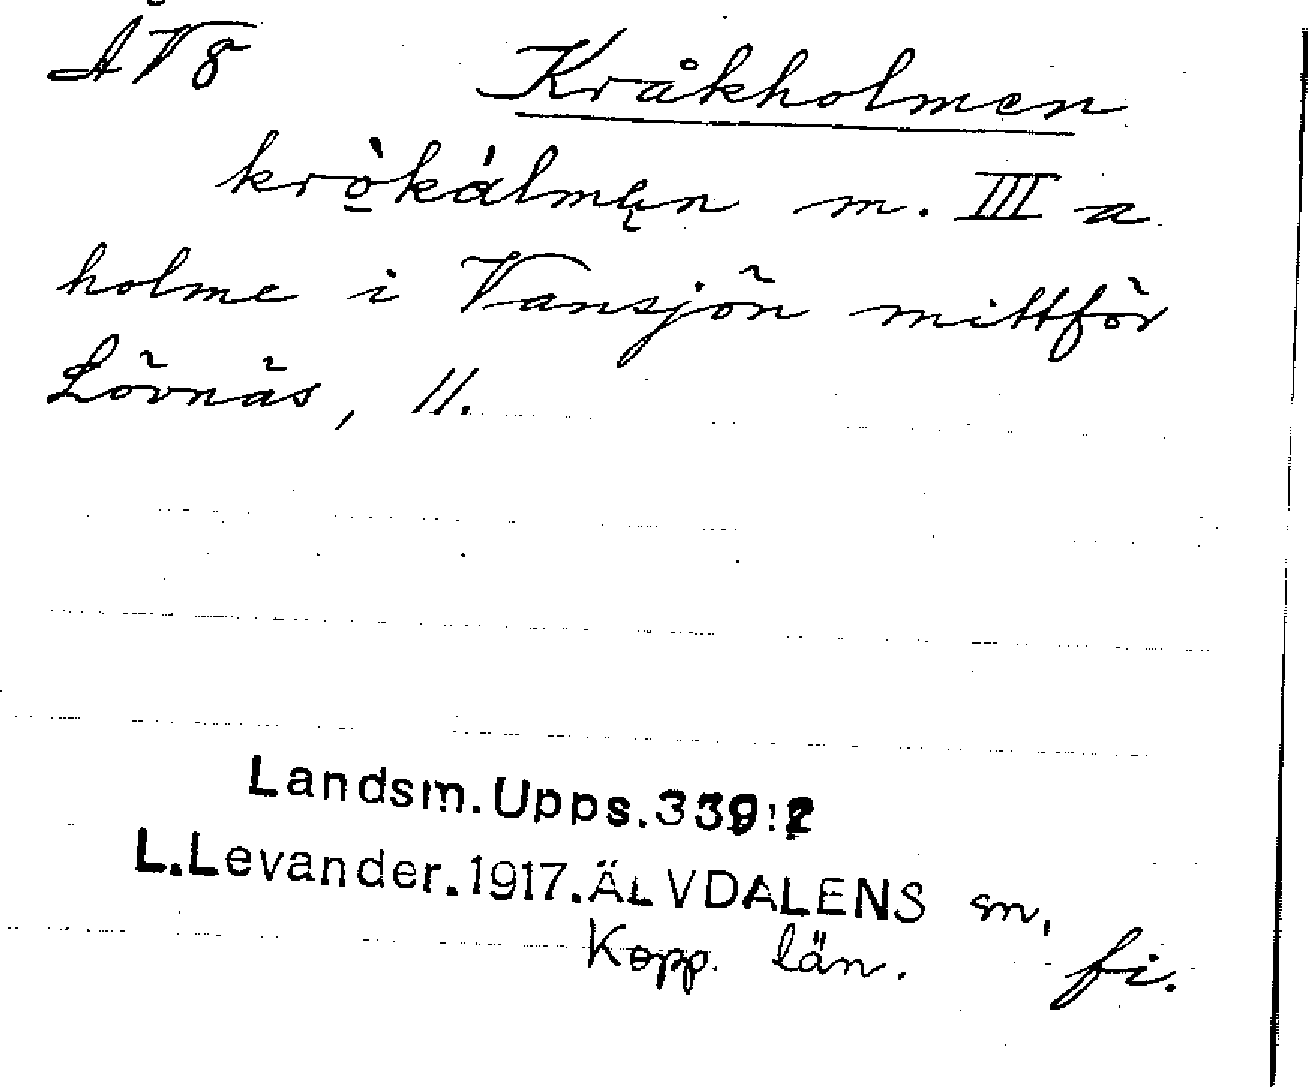 ÅV8 Kråkholmen
kròkálmęn m. III a
holme i Vansjön mittför
Lövnäs, 11.
Landsm.Upps.339:2
L.Levander.1917.ÄLVDALENS sn,
Kopp. län. fi.